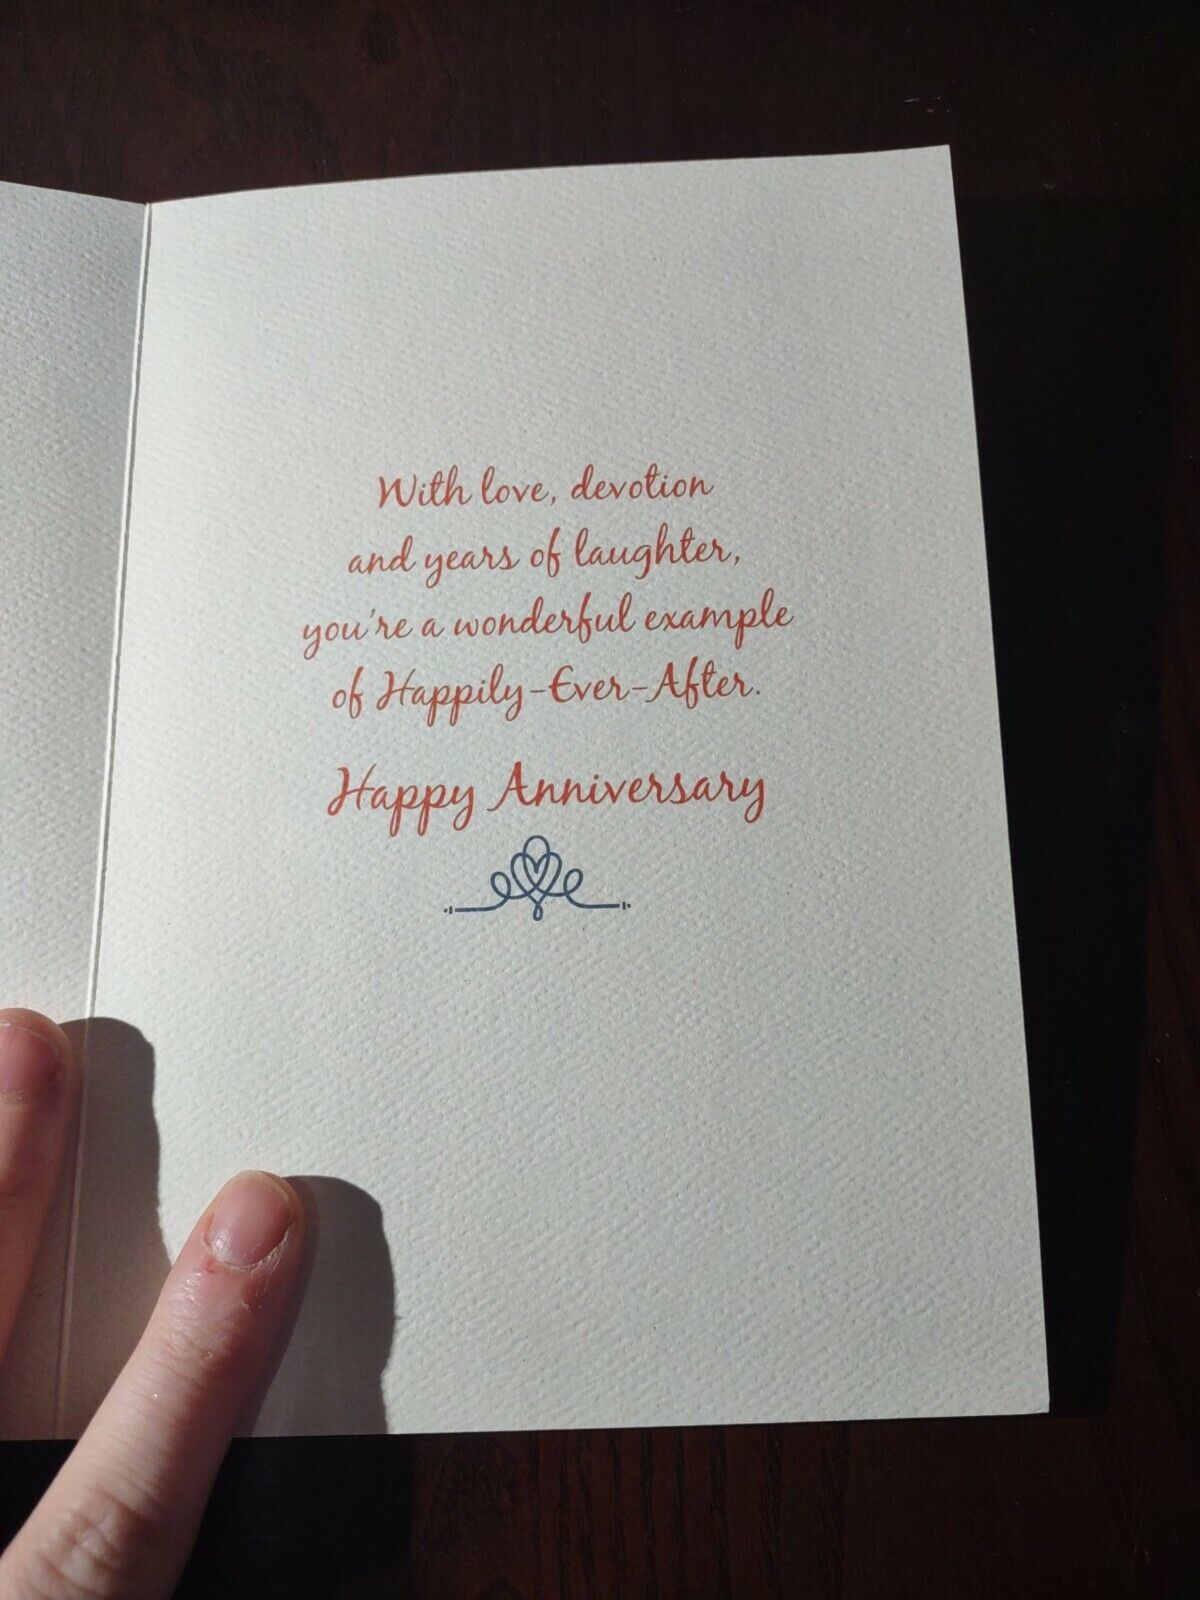 With love, devotion
and years of laughter,
you're a wonderful example
of Happily-Ever-After.
Happy Anniversary